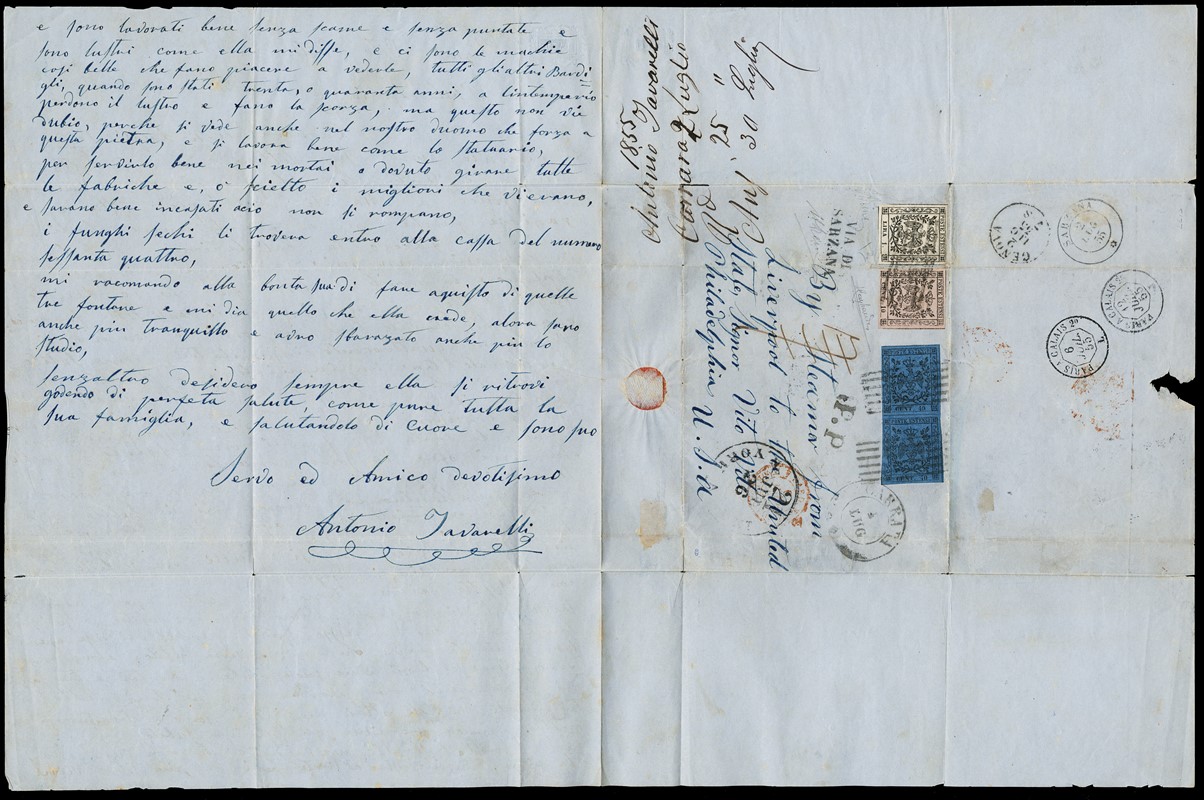 e sono lavorati bene senza scame e senza puntate e
sono lustri come ella mi disse, e ci sono le machie
cosi belle che fano piacere a vederle, tutti gli altri Bardi
gli, quando sono stati trenta, o quaranta anni, a lintemperio
perdono il lustro e fano la scorza, ma questo non vie
dubio, perche si vede anche nel nostro duomo che forza a
questa pietra, e si lavora bene come lo statuario,
per servirlo bene nei mortai o dovuto girare tutte
le fabriche e, o scielto i miglioni che vierano,
e sarano bene incasati acio non si rompano,
i funghi sechi li trovera entro alla cassa del numaro
sessanta quattro,
mi racomando alla bonta sua di fare aquisto di quelle
tre fontane e mi dia quello che ella crede, alora sono
anche piu tranquillo e avro sbarazato anche piu lo
studio,
senzaltro desidero sempre ella si ritrovi
godendo di perfeta salute, come pure tutta la
sua famiglia, e salutandolo di cuore e sono suo
Servo ed Amico devotisimo
Antonio Tavarelli
1855
Antonio Tavarelli
Carrara 2 Luglio
" 25 "
30 Luglio
VIA DI
SARZANA
By Steamer from
Liverpool to the United
State, Signor Vito Viti
Philadelphia U. S. a
P.P
LIRA 1.
POSTE ESTENSI
CENT. 10
POSTE ESTENSI
CENT. 40
POSTE ESTENSI
CENT. 40
CARRARA
2
LUG
GENOVA
SARZANA
PARIS A CALAIS 2°
PARIS A CALAIS